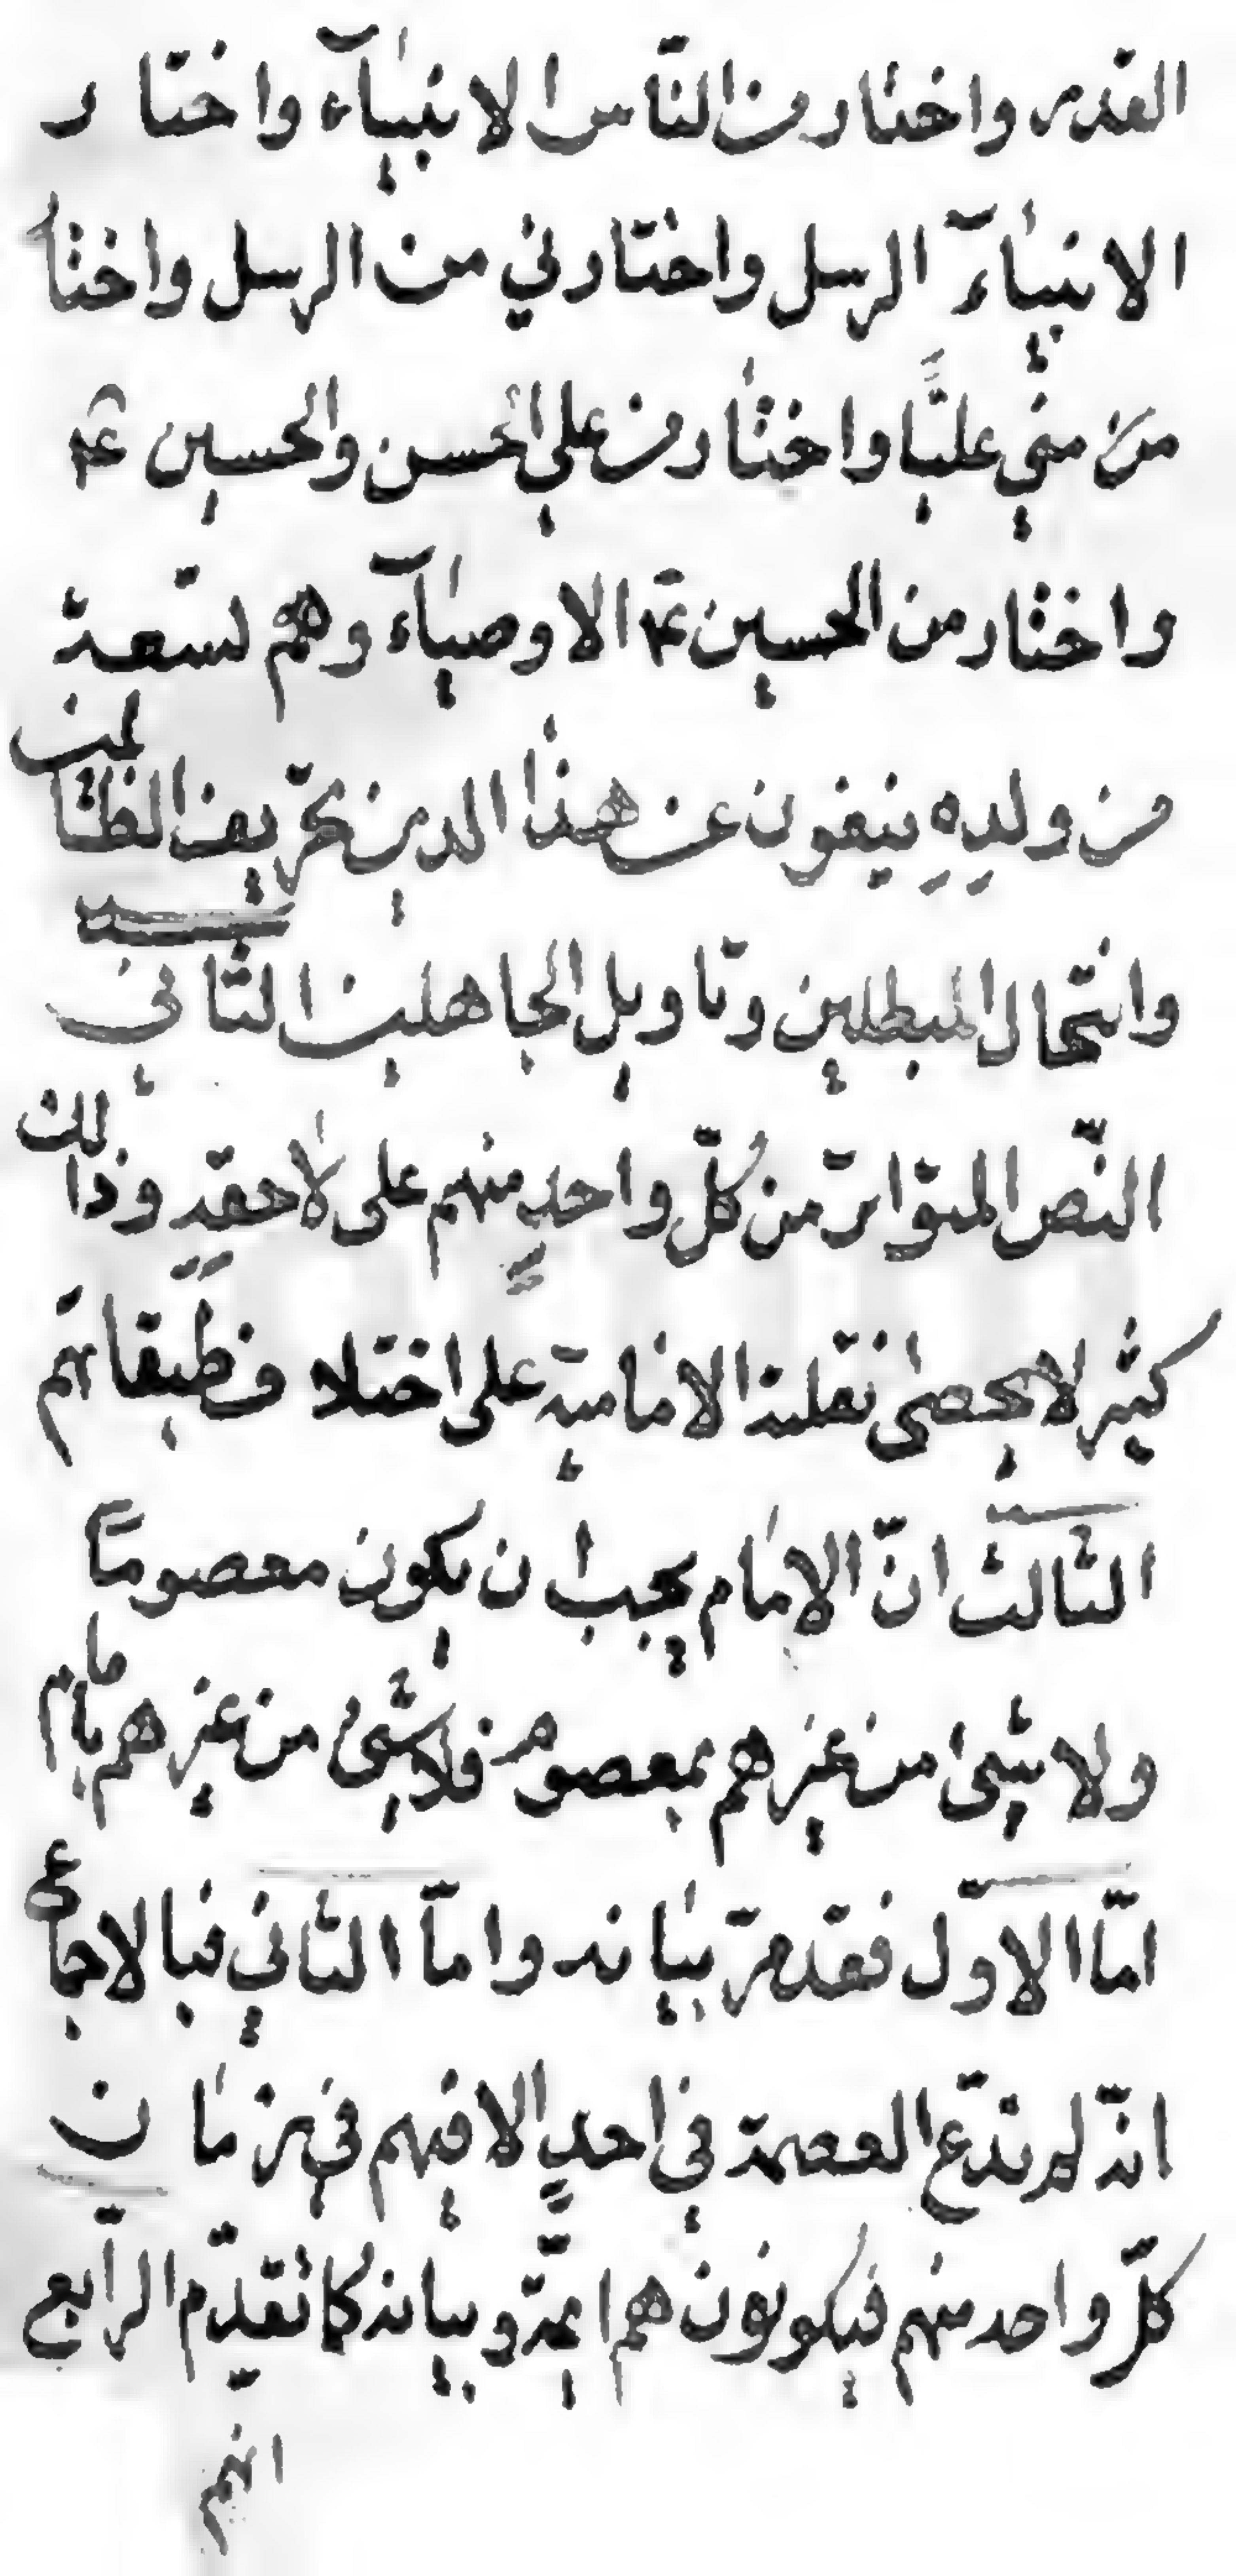 القدر واختار من النّاس الانبيآء واختار
الانبيآء الرسل واختارني من الرسل واختا
من منّي عليًّا واختار من علي الحسن والحسين عم
واختار من الحسين عم الاوصيآء وهم تسعة
من ولدِهِ ينفون عن هذا الدين تحريف الظّالمين
وانتحال المبطلين وتاويل الجاهلين الثّاني
النّص المتواتر من كُلّ واحدٍ منهم على لاحقِهِ وذالك
كثير لا يحصى نقلته الاماميّة على اختلاف طبقاتهم
الثّالث انّ الامام يجب ان يكون معصومًا
ولا شيئ من غيرهم بمعصوم فلا شيئ من غيرهم بامام
امّا الاوّل فقد مرّ بيانه وامّا الثّاني فبالاجماع
انّه لم تدّع العصمة في احدٍ الا فيهم في زمان
كلّ واحد منهم فيكونون هم ائمّة وبيانه كما تقدّم الرابع
انهم